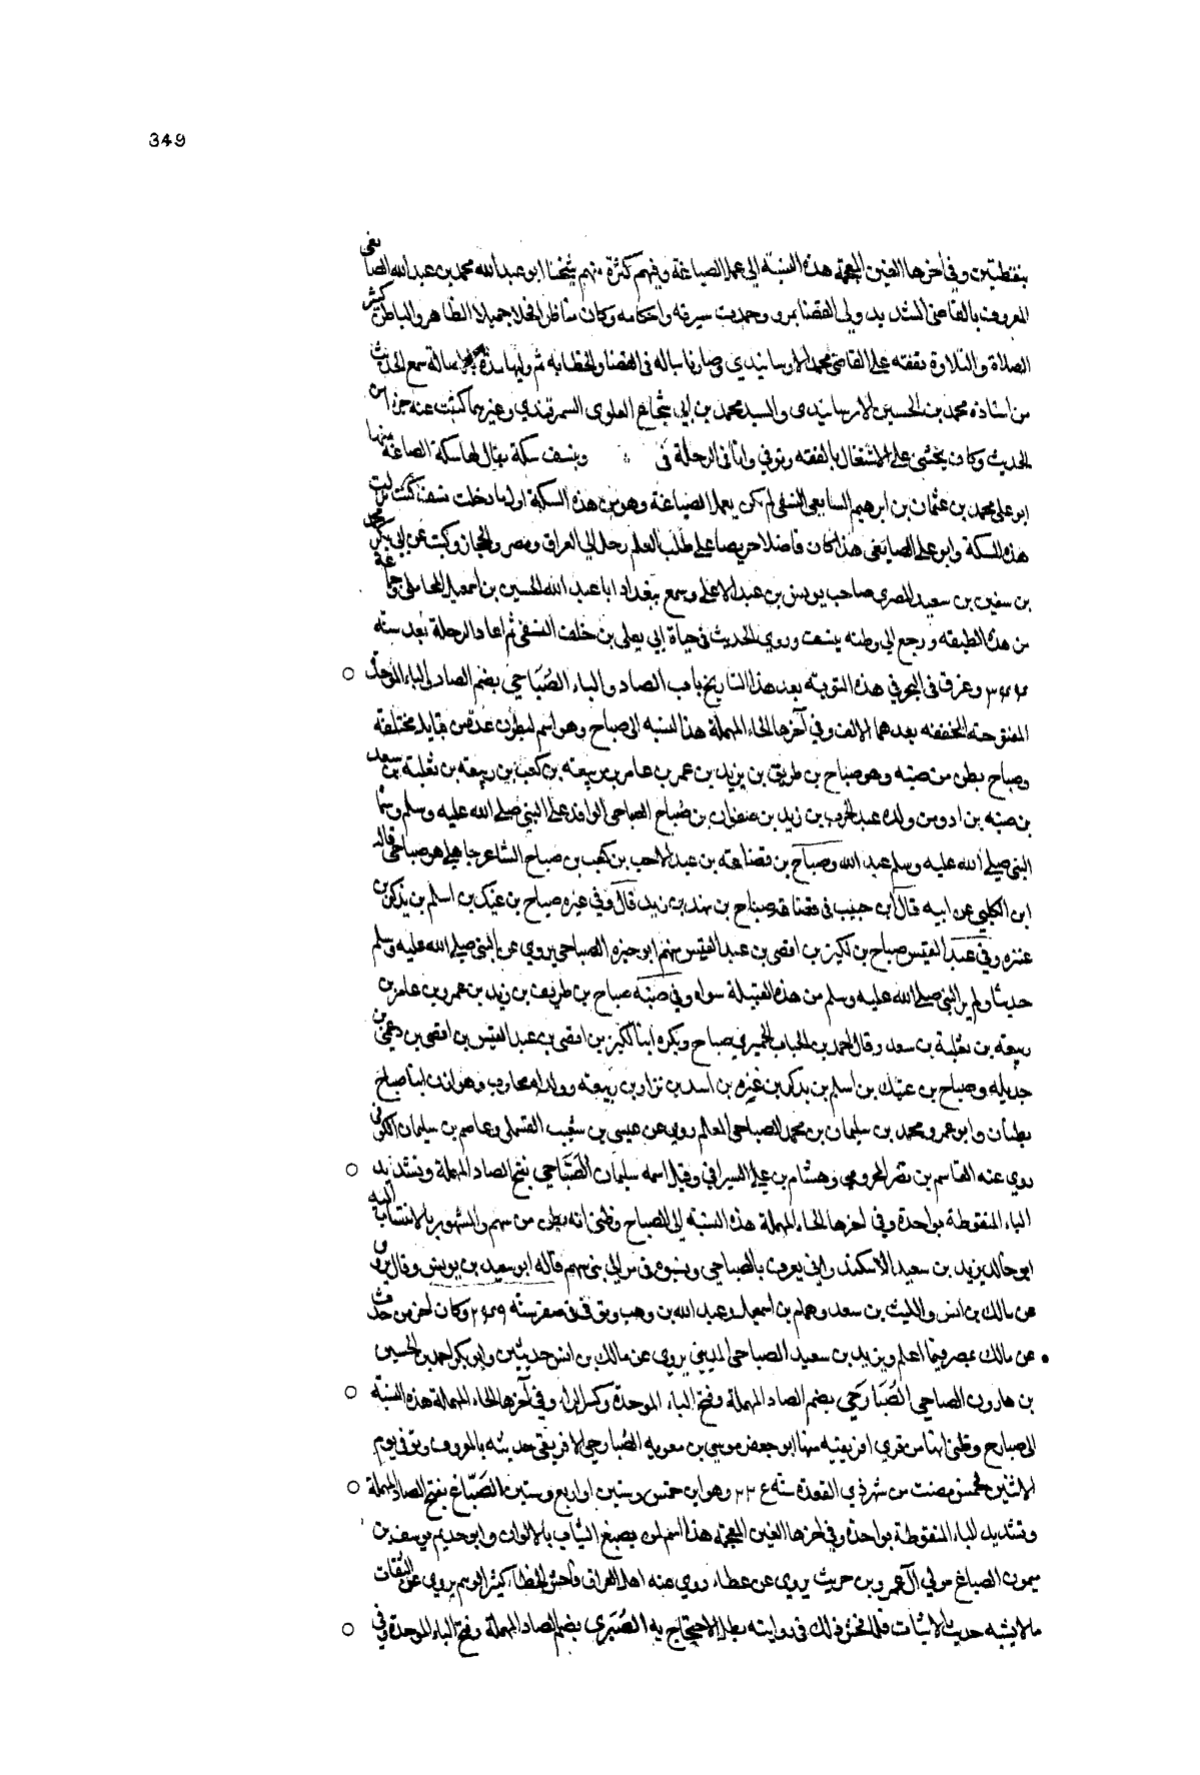 349
بنقطتين وفي اخرها الغين المعجمة هذه النسبة الى عمل الصياغة وفيهم كثرة منهم شيخنا ابو عبد الله محمد بن عبد الله الصايغي
المعروف بالقاضي السديد ولي القضا بمرو وحمدت سيرته واحكامه وكان مناظرا فحلا جميل الظاهر والباطن كثير
الصلاة والتلاوة تفقه على القاضي محمد الارسابندي وصار نايبا له في القضا والخطابة ثم وليها مدة اصالة سمع الحديث
من استاذه محمد بن الحسين الارسابندي والسيد محمد بن ابي شجاع العلوي السمرقندي وغيرهما كتبت عنه جزا من
الحديث وكان يحثني على الاشتغال بالفقه وتوفي وانا في الرحلة في وبنسف سكة يقال لها سكة الصاغة منها
ابو علي محمد بن عثمان بن ابرهيم الصايغي النسفي لم يكن يعمل الصياغة وهو من هذه السكة اول ما دخلت نسف كنت نزلت
هذه السكة وابو علي الصايغي هذا كان فاضلا حريصا على طلب العلم رحل الى العراق ومصر والحجاز وكتب عن ابي بكر محمد
بن سفين بن سعيد المصري صاحب يونس بن عبد الاعلى وسمع ببغداد ابا عبد الله الحسين بن اسمعيل المحاملي وجماعة
من هذه الطبقة ورجع الى وطنه بنسف وروي الحديث في حياة ابي يعلى بن خلف النسفي ثم اعاد الرحلة بعد سنة
٣٤٣ وغرق في البحر في هذه النوبة بعد هذا التاريخ باب الصاد والباء الصُبَاحي بضم الصاد والباء الموحدة
المفتوحة المخففة بعدهما الالف وفي آخرها الحاء المهملة هذه النسبة الى صباح وهو اسم لبطون عدة من قبايل مختلفة
وصباح بطن من ضبه وهو صباح بن طريف بن يزيد بن عمر بن عامر بن ربيعه بن كعب بن ربيعه بن ثعلبة بن سعد
بن ضبه بن اد ومن ولده عبد الحرث بن زيد بن صفوان بن صُباح الصباحي الوافد على النبي صلى الله عليه وسلم وسماه
النبي صلى الله عليه وسلم عبد الله وصباح بن قضاعة بن عبد الاحب بن كعب بن صباح الشاعر جاهلي هو صباحي قاله
ابن الكلبي عن ابيه قال ابن حبيب في قضاعة صباح بن نهد بن زيد قال وفي عنزه صباح بن عتيك بن اسلم بن يذكر بن
عنزه وفي عبد القيس صباح بن لكيز بن افصى بن عبد القيس منهم ابو خيره الصباحي يروي عن النبي صلى الله عليه وسلم
حديثا ولم ير النبي صلى الله عليه وسلم من هذه القبيلة سواه وفي ضبة صباح بن طريف بن زيد بن عمرو بن عامر بن
ربيعه بن ثعلبة بن سعد وقال احمد بن الحباب الحميري صباح ونكره ابنا لكيز بن افصى بن عبد القيس بن افصى بن دعمي بن
جديله وصباح بن عتيك بن اسلم بن يذكر بن عنزه بن اسد بن نزار بن ربيعه وولداه محارب وهزان ابنا صباح
بطنان وابو عمرو محمد بن سليمان بن محمد الصباحي المعلم روي عن عيسى بن شعيب القسملي وعاصم بن سليمان الكوفي
روي عنه القاسم بن نصر المخرمي وهشام بن علي السيرافي وقيل اسمه سليمان الصَبَّاحي بفتح الصاد المهملة وتشديد
الباء المنقوطة بواحدة وفي اخرها الحاء المهملة هذه النسبة الى الصباح وظني انه بطن من سهم والمشهور بالانتساب اليه
ابو خالد يزيد بن سعيد الاسكندراني يعرف بالصباحي ونسبوه في موالي بني سهم قاله ابو سعيد بن يونس وقال يروي
عن مالك بن انس والليث بن سعد وهمام بن اسمعيل وعبد الله بن وهب وتوفي في صفر سنة ٢٤٩ وكان اخر من حدث
عن مالك بمصر فيما اعلم ويزيد بن سعيد الصباحي المديني يروي عن مالك بن انس حديثين وابو بكر احمد بن الحسين
بن هارون الصباحي الصُبَارَحي بضم الصاد المهملة وفتح الباء الموحدة وكسر الراء وفي آخرها الحاء المهملة هذه النسبة
الى صبارح وظني انها من قري افريقية منها ابو جعفر موسى بن معوية الصبارحي الافريقي حديثه بالمعروف وتوفي يوم
الاثنين لخمس مضت من شهر ذي القعدة سنة ٢٢٤ وهو ابن خمس وستين او اربع وستين الصَبّاغ بفتح الصاد المهملة
وتشديد الباء المنقوطة بواحدة وفي اخرها الغين المعجمة هذا اسم لمن يصبغ الثياب بالالوان وابو خديم يوسف بن
ميمون الصباغ مولي آل عمرو بن حريث يروي عن عطاء روي عنه اهل العراق فاحش الخطا كثير الوهم يروي عن الثقات
ما لا يشبه حديث الاثبات فلما فحش ذلك في روايته بطل الاحتجاج به الصُبَري بضم الصاد المهملة وفتح الباء الموحدة وفي